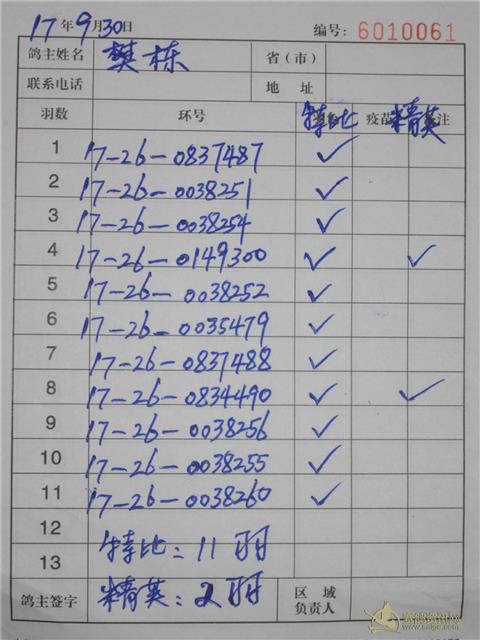 17年9月30日 编号：6010061
鸽主姓名 樊栋 省（市）
联系电话 地 址
羽数 环号 特比 疫苗 精英 注
1 17-26-0837487 ✓
2 17-26-0038251 ✓
3 17-26-0038254 ✓
4 17-26-0149300 ✓ ✓
5 17-26-0038252 ✓
6 17-26-0035479 ✓
7 17-26-0837488 ✓
8 17-26-0834490 ✓ ✓
9 17-26-0038256 ✓
10 17-26-0038255 ✓
11 17-26-0038260 ✓
12 特比：11羽
13
鸽主签字 精英：2羽 区 域
负责人